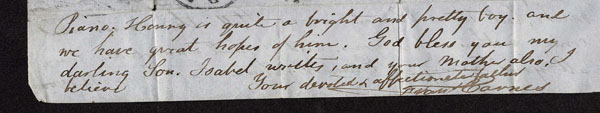 Piano. Henry is quite a bright and pretty boy. and
we have great hopes of him. God bless you my
darling Son. Isabel writes, and your Mother also, I
believe Your devoted & affectionate father
Barnes